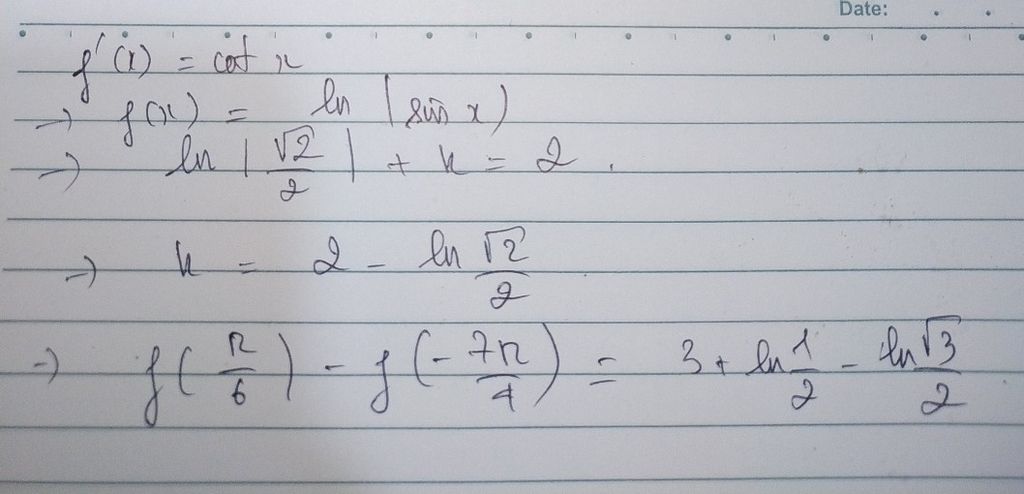 Date:
f'(x) = cot x
→ f(x) = ln |sin x)
→ ln |√2/2| + k = 2 .
→ k = 2 - ln √2/2
→ f(π/6) - f(-7π/4) = 3 + ln 1/2 - ln √3/2